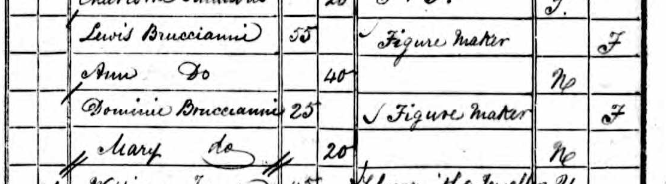 20
Lewis Bruccianni 55 Figure Maker F
Ann Do 40 N
Dominic Bruccianni 25 Figure Maker F
Mary do 20 N